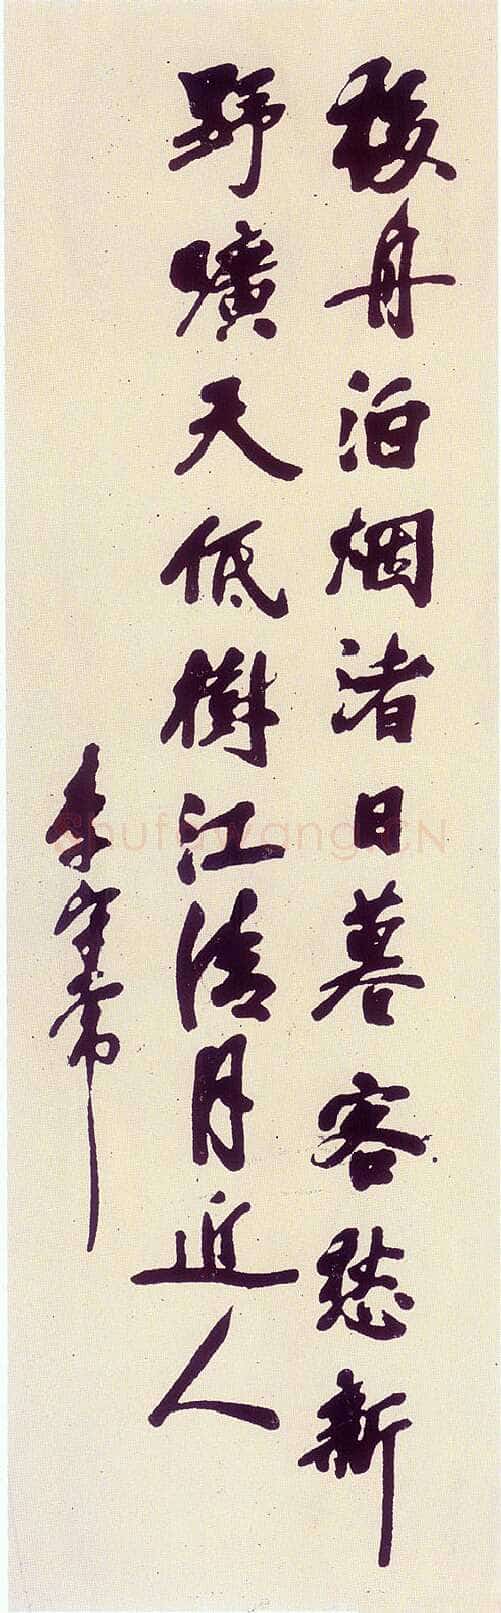 移舟泊烟渚日暮客愁新
野曠天低樹江清月近人
李守常
shufawang.CN